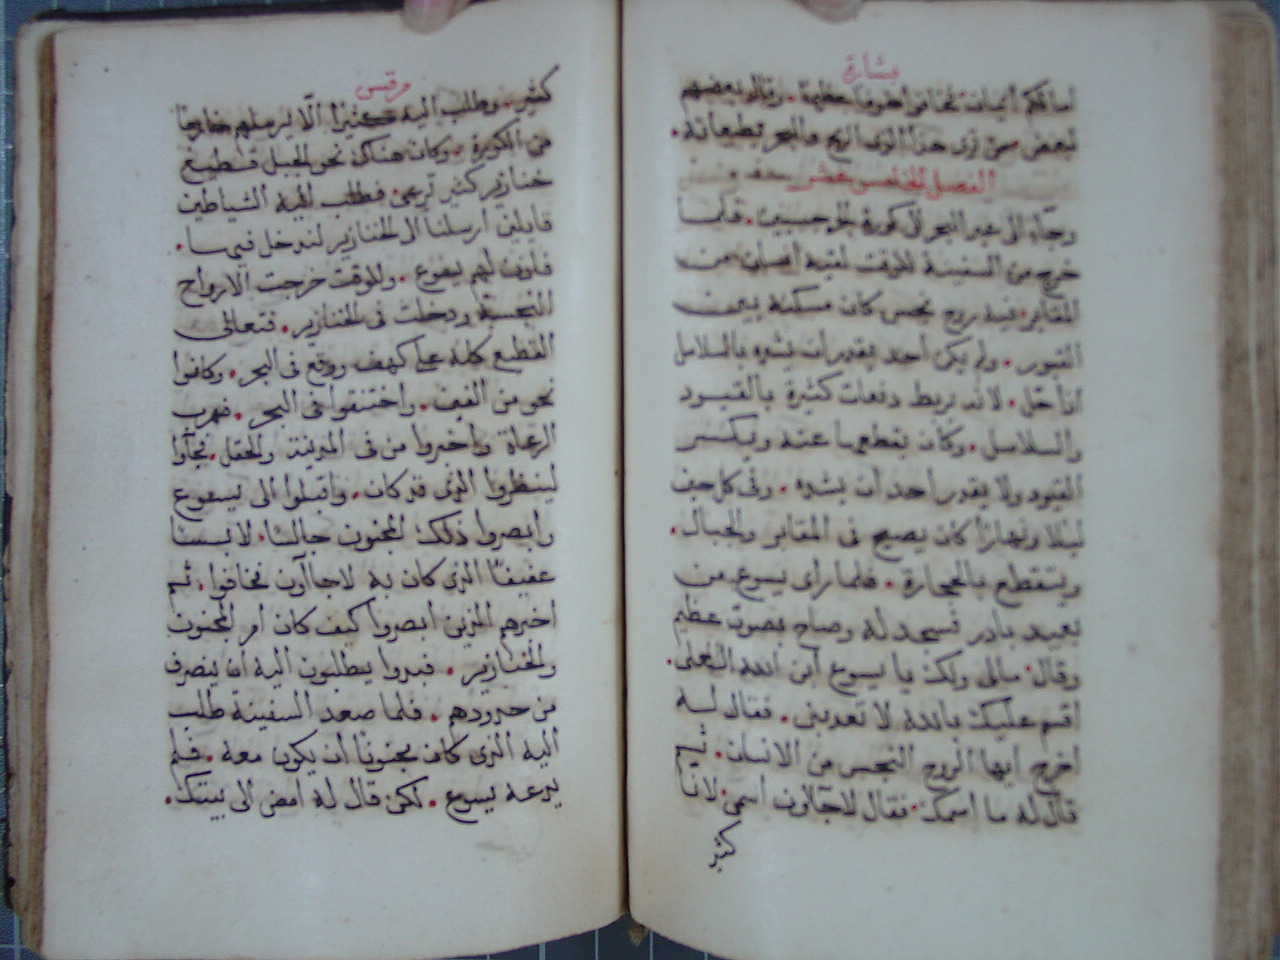 بشارة
لبعض من ترى هذا الذى الريح والبحر يطيعانه.
الفصل الخامس عشر
وجآء الى عبر البحر الى كورة الجرجسيين. فلما
خرج من السفينة للوقت لقيه انسان من
المقابر فيه روح نجس كان مسكنه بين
القبور. ولم يكن احد يقدر ان يشده بالسلاسل
لانه ربط دفعات كثيرة بالقيود
والسلاسل. وكان يقطعها عنه ويكسر
القيود ولا يقدر احد ان يشده. وفى كل حين
ليلا ونهارًا كان يصيح فى المقابر والجبال.
ويتقطع بالحجارة. فلما راى يسوع من
بعيد بادر فسجد له وصاح بصوت عظيم
وقال. مالى ولك يا يسوع ابن الله العلى
اقسم عليك بالله لا تعذبنى. فقال له
اخرج ايها الروح النجس من الانسان. ثم
قال له ما اسمك. فقال لاجآون اسمى. لاننا
كثير
مرقس
كثير. وطلب اليه كثيرًا الّا يرسلهم خارجًا
من الكورة. وكان هناك نحو الجبل قطيع
خنازير كثير ترعى. فطلب اليه الشياطين
قايلين ارسلنا الى الخنازير لندخل فيها.
فاذن لهم يسوع. وللوقت خرجت الارواح
النجسة ودخلت فى الخنازير. فتعالى
القطيع كله على كهف ووقع فى البحر. وكانوا
نحو من الفين. واختنقوا فى البحر. فهرب
الرعاة واخبروا من فى المدينة والحقل. فجآوا
لينظروا الذى قد كان. واقبلوا الى يسوع
وابصروا ذلك المجنون جالسًا. لابسًا
عفيفًا الذى كان به لاجاآون فخافوا. ثم
اخبرهم الذين ابصروا كيف كان امر المجنون
والخنازير. فبدوا يطلبون اليه ان ينصرف
من حدودهم. فلما صعد السفينة طلب
اليه الذى كان مجنونًا ان يكون معه. فلم
يدعه يسوع. لكن قال له امض الى بيتك.